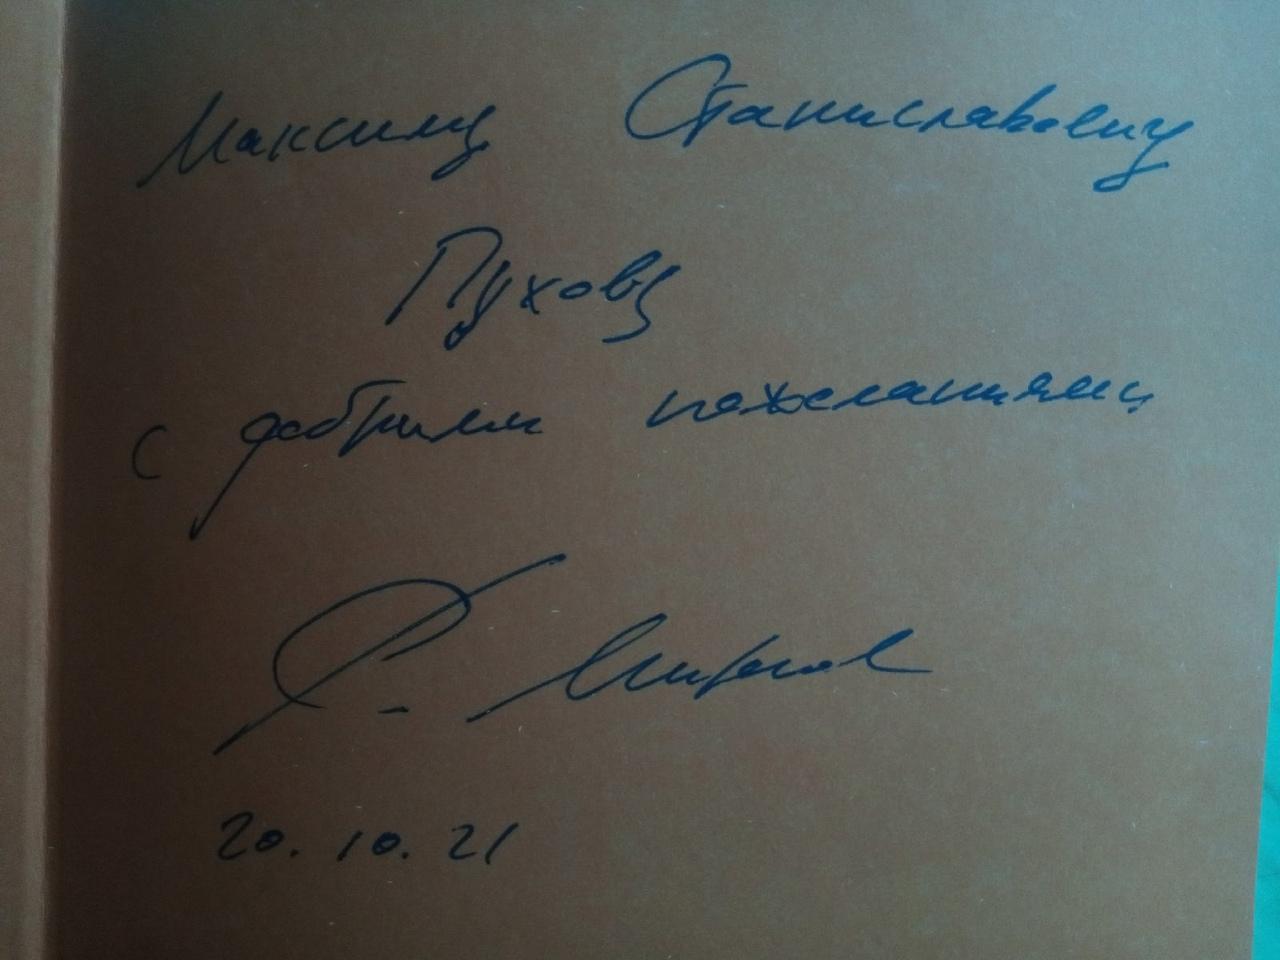 Максиму Станиславовичу
Пухову
с добрыми пожеланиями
20.10.21